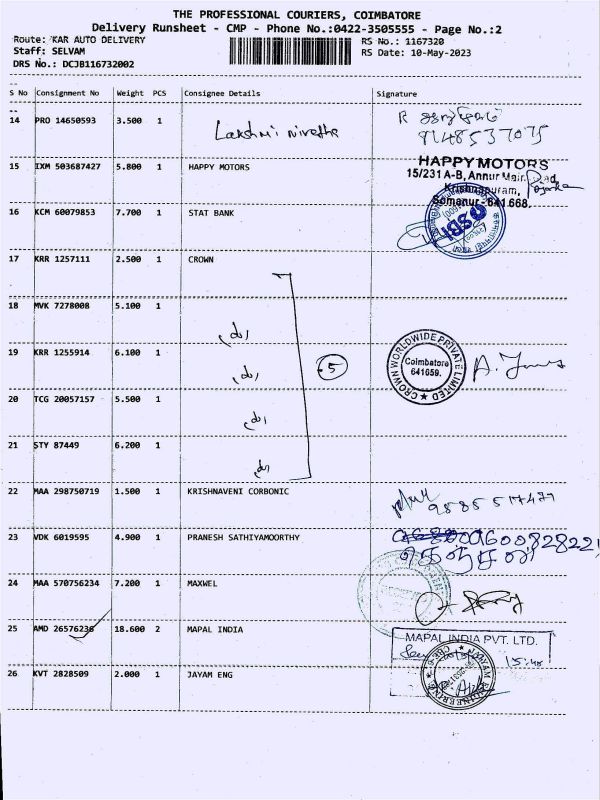 THE PROFESSIONAL COURIERS, COIMBATORE
Delivery Runsheet - CMP - Phone No.:0422-3505555 - Page No.:2
Route: KAR AUTO DELIVERY
RS No.: 1167320
Staff: SELVAM
RS Date: 10-May-2023
DRS No.: DCJB116732002
S No Consignment No Weight PCS Consignee Details Signature
14 PRO 14650593 3.500 1 Lakshmi nivetha R
8148537075
15 IXM 503687427 5.800 1 HAPPY MOTORS HAPPY MOTORS
15/231 A-B, Annur Main Road,
Krishnapuram,
Somanur - 641 668.
16 KCM 60079853 7.700 1 STAT BANK SBI
17 KRR 1257111 2.500 1 CROWN
18 MVK 7278008 5.100 1
19 KRR 1255914 6.100 1 5 CROWN WORLDWIDE PRIVATE LIMITED
Coimbatore
641059.
20 TCG 20057157 5.500 1
21 STY 87449 6.200 1
22 MAA 298750719 1.500 1 KRISHNAVENI CORBONIC 9585517477
23 VDK 6019595 4.900 1 PRANESH SATHIYAMOORTHY
24 MAA 570756234 7.200 1 MAXWEL
25 AMD 26576236 18.600 2 MAPAL INDIA MAPAL INDIA PVT. LTD.
26 KVT 2828509 2.000 1 JAYAM ENG JAYAM ENGINEERING